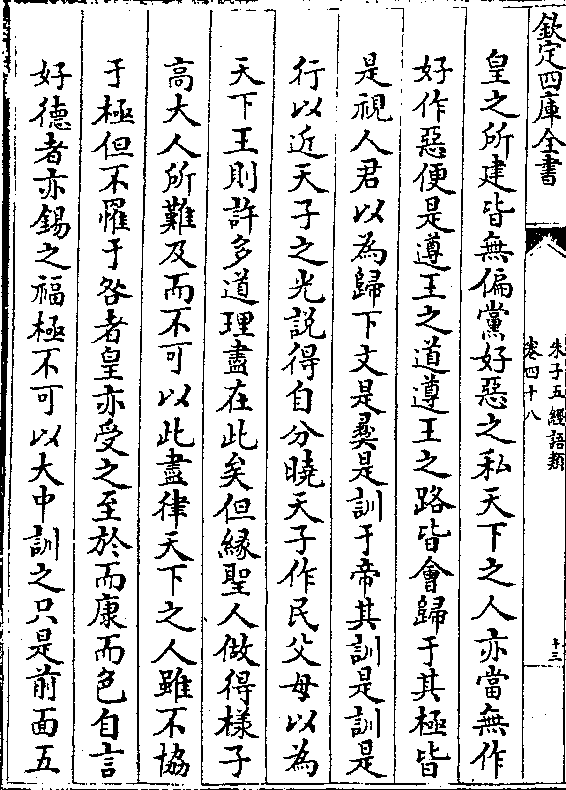 欽定四庫全書
朱子五經語類
卷四十八
十三
皇之所建皆無偏黨好惡之私天下之人亦當無作
好作惡便是遵王之道遵王之路皆會歸于其極皆
是視人君以為歸下文是彞是訓于帝其訓是訓是
行以近天子之光說得自分曉天子作民父母以為
天下王則許多道理盡在此矣但緣聖人做得樣子
高大人所難及而不可以此盡律天下之人雖不協
于極但不罹于咎者皇亦受之至於而康而色自言
好德者亦錫之福極不可以大中訓之只是前面五